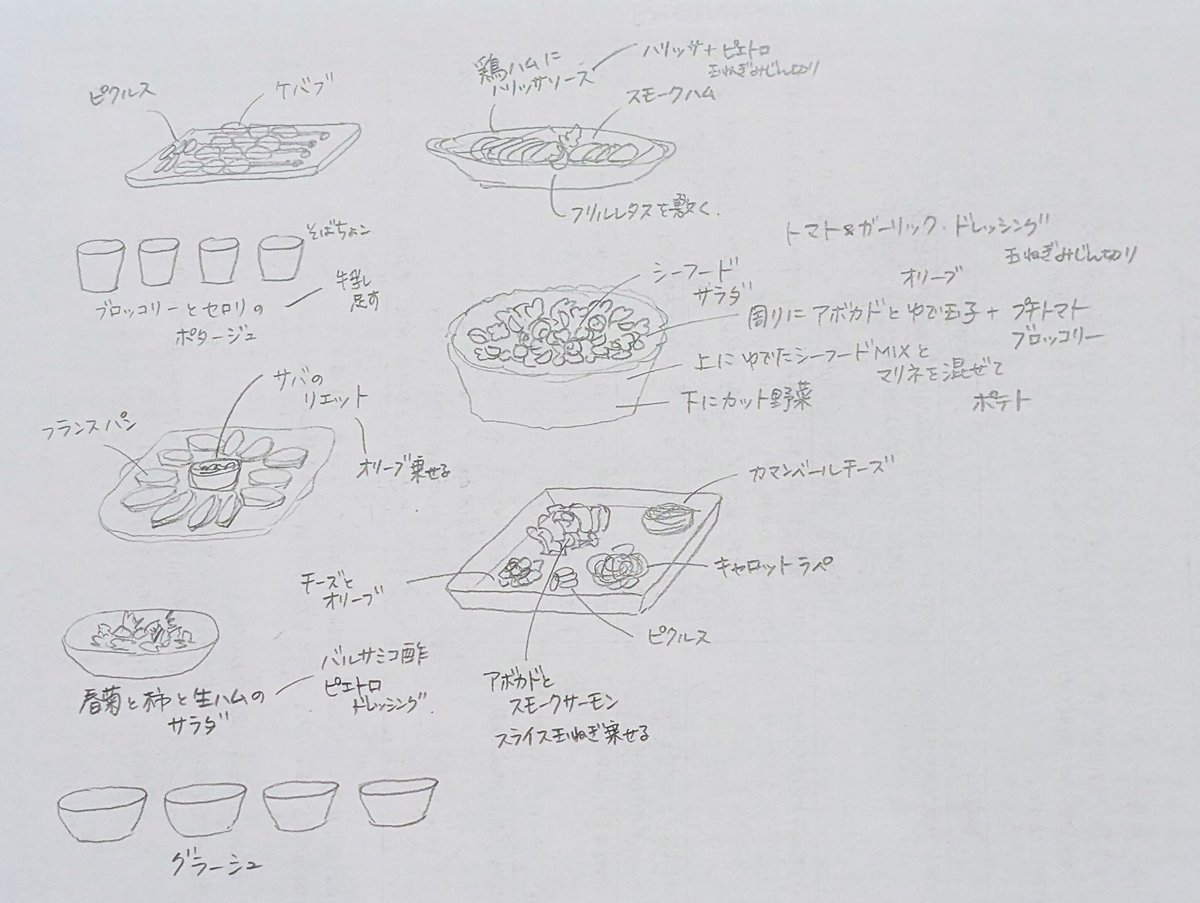 ピクルス
ケバブ
鶏ハムに
ハリッサソース
ハリッサ+ピエトロ
玉ねぎみじん切り
スモークハム
フリルレタスを敷く.
そばちょこ
ブロッコリーとセロリの
ポタージュ
牛乳
足す
トマト&ガーリック・ドレッシング
玉ねぎみじん切り
シーフード
サラダ
オリーブ
周りにアボカドとゆで玉子+プチトマト
ブロッコリー
上にゆでたシーフードMIXと
マリネを混ぜて
下にカット野菜
ポテト
サバの
リエット
フランスパン
オリーブ乗せる
カマンベールチーズ
チーズと
オリーブ
キャロットラペ
ピクルス
アボカドと
スモークサーモン
スライス玉ねぎ乗せる
春菊と柿と生ハムの
サラダ
バルサミコ酢
ピエトロ
ドレッシング.
グラーシュ